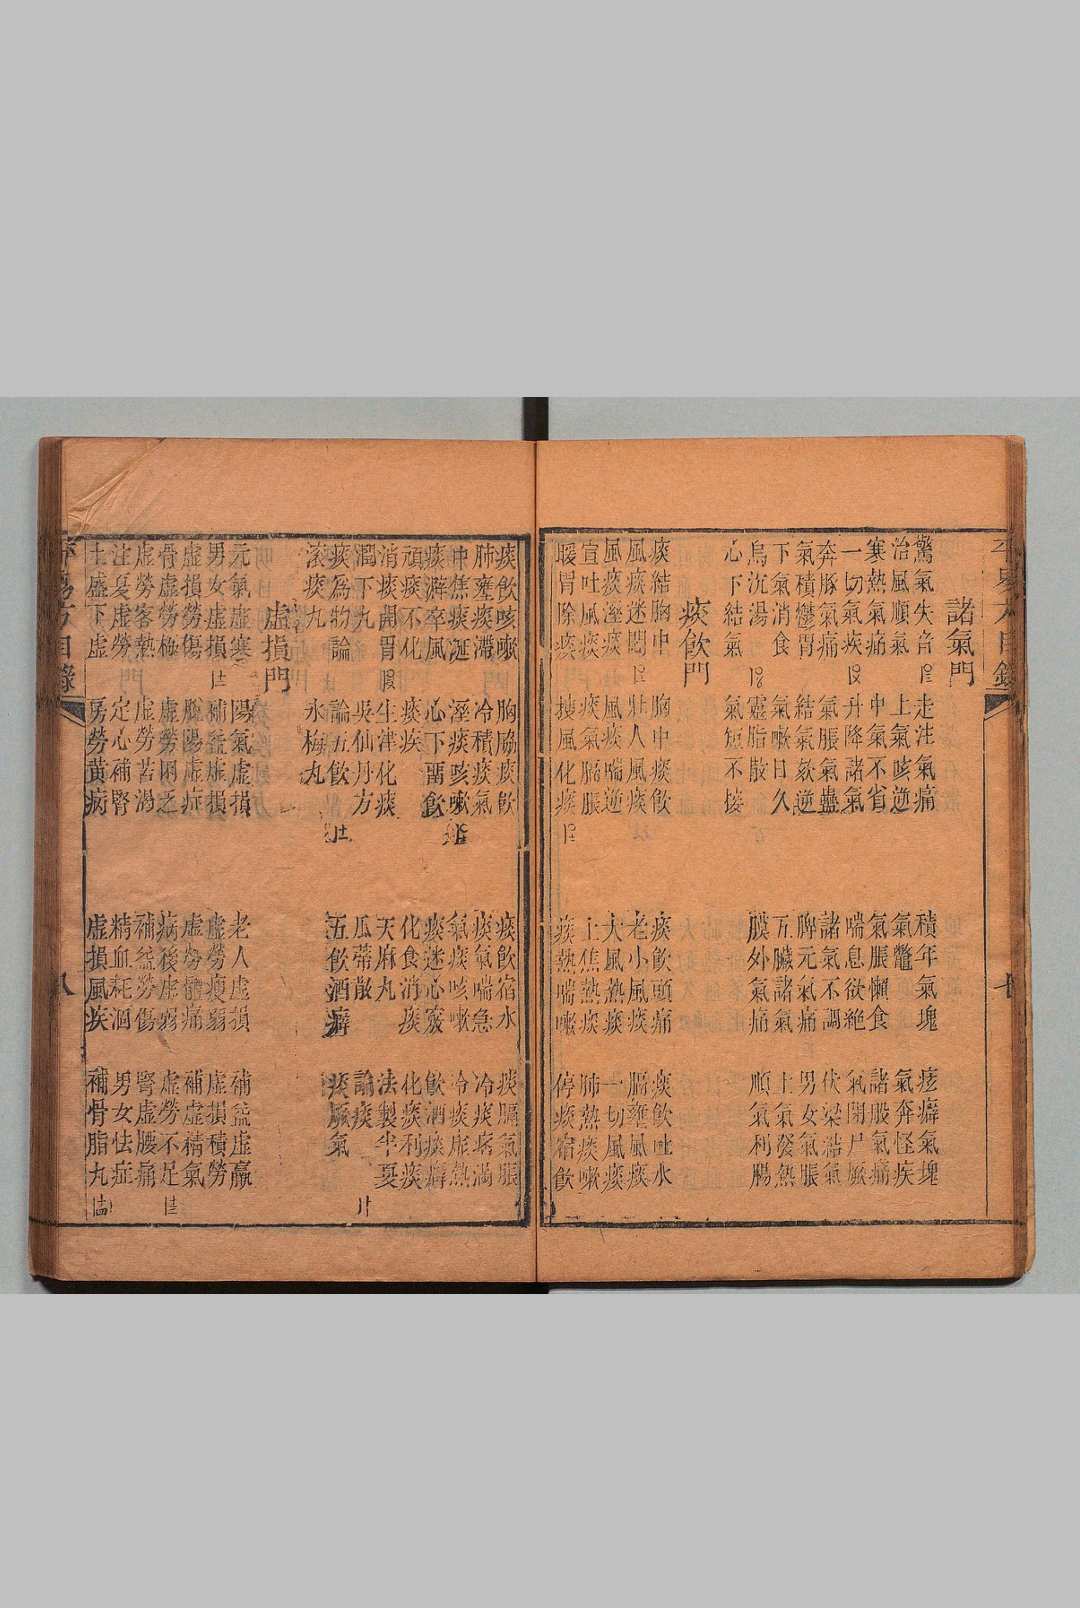 諸氣門
驚氣失音 走注氣痛 積年氣塊 痃癖氣塊
治風順氣 上氣咳逆 氣鼈 氣奔怪疾
寒熱氣痛 中氣不省 氣脹懶食 諸股氣痛
一切氣疾 升降諸氣 喘息欲絕 氣閉尸厥
奔豚氣痛 氣脹氣蠱 諸氣不調 伏梁結氣
氣積鬱胃 結氣欬逆 脾元氣痛 男女氣脹
下氣消食 氣嗽日久 五臟諸氣 上氣發熱
烏沉湯 靈脂散 膜外氣痛 順氣利腸
心下結氣 氣短不接
痰飲門
痰結胸中 胸中痰飲 痰飲頭痛 痰飲吐水
風痰迷悶 壯人風痰 老小風痰 膈壅風痰
風痰溼痰 風痰喘逆 大風熱痰 一切風痰
宣吐風痰 痰氣膈脹 上焦熱痰 肺熱痰嗽
暖胃除痰 搜風化痰 痰熱喘嗽 停痰宿飲
痰飲咳嗽 胸脇痰飲 痰飲宿水 痰膈氣脹
肺壅痰滯 冷積痰氣 痰氣喘急 冷痰痞滿
中焦痰涎 溼痰咳嗽 氣痰咳嗽 冷痰虛熱
痰澼卒風 心下畱飲 痰迷心竅 飲酒痰澼
頑痰不化 痰疾 化食消痰 化痰利痰
消痰開胃 生津化痰 天麻丸 法製半夏
潤下丸 吳仙丹方 瓜蒂散 論痰
痰為物論 論五飲 五飲酒癖 痰厥氣
滾痰丸 氷梅丸
虛損門
元氣虛寒 陽氣虛損 老人虛損 補益虛羸
男女虛損 補益虛損 虛勞瘦弱 虛損積勞
虛損勞傷 脫陽虛症 虛勞體痛 補虛精氣
骨虛勞極 虛勞困乏 病後虛弱 虛勞不足
虛勞客熱 虛勞苦渴 補益勞傷 腎虛腰痛
注夏虛勞 定心補腎 精血耗涸 男女怯症
上盛下虛 房勞黃病 虛損風疾 補骨脂丸
方目錄
八